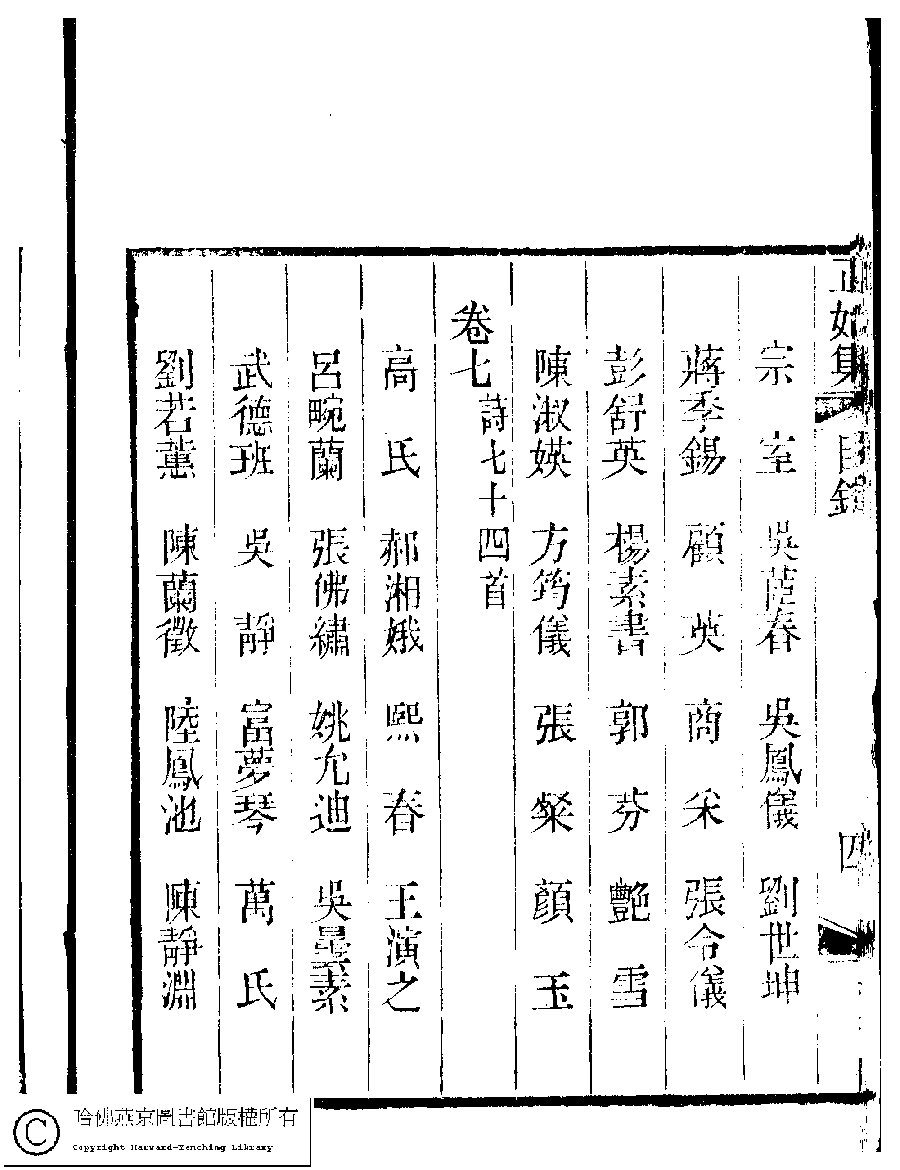 正始集 目錄 四
宗室 吳茝春 吳鳳儀 劉世坤
蔣季錫 顧英 商采 張令儀
彭舒英 楊素書 郭芬 艷雪
陳淑媖 方筠儀 張粲 顏玉
卷七 詩七十四首
高氏 郝湘娥 熙春 王演之
呂畹蘭 張佛繡 姚允迪 吳曇素
武德班 吳靜 富夢琴 萬氏
劉若蕙 陳蘭徵 陸鳳池 陳靜淵
哈佛燕京圖書館版權所有
Copyright Harvard-Yenching Library